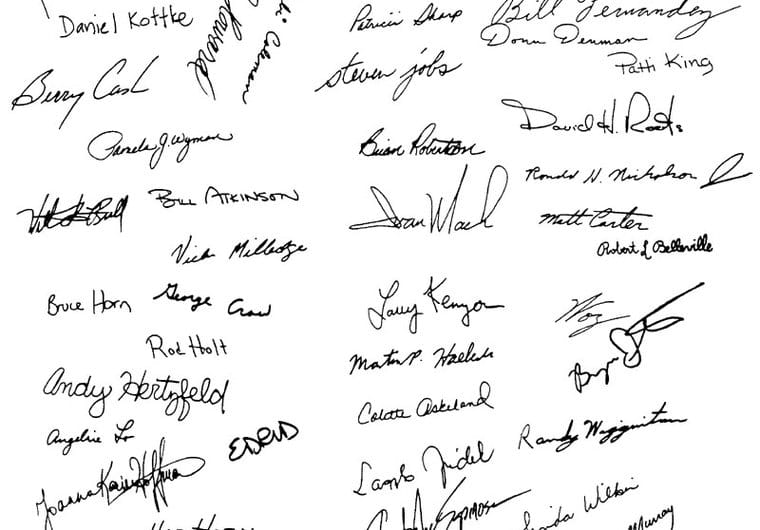 Daniel Kottke
Howard
Coleman
Patricia Sharp
Bill Fernandez
Donn Denman
Patti King
Berry Cash
steven jobs
David H. Roots
Pamela G. Wyman
Brian Robertson
Ronald H. Nicholson Jr
Bill Atkinson
Matt Carter
Robert L Belleville
Vicki Milledge
Bruce Horn
George Crow
Larry Kenyon
Woz
Rod Holt
Martin P. Haeberli
Bryan
Andy Hertzfeld
Angeline Lo
Colette Askeland
Randy Wigginton
Joanna Karin Hoffman
Linda Wilkin